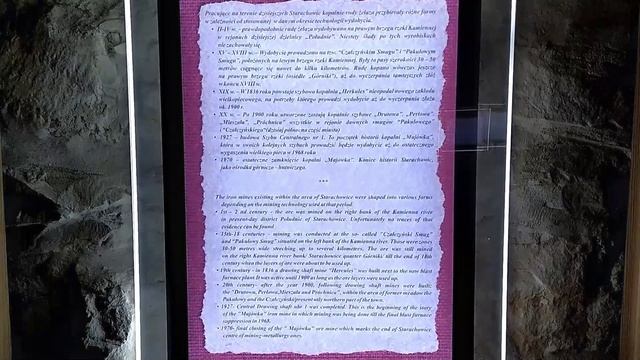 Pracujące na terenie dzisiejszych Starachowic kopalnie rudy żelaza przybierały różne formy
w zależności od stosowanej w danym okresie technologii wydobycia.
• II-IV w. - prawdopodobnie rudę żelaza wydobywano na prawym brzegu rzeki Kamiennej
w rejonach dzisiejszej dzielnicy „Południe". Niestety ślady po tych wyrobiskach
nie zachowały się.
• XV – XVIII w. – Wydobycie prowadzono na tzw. "Czałczyńskim Smugu" i "Pakułowym
Smugu", położonych na lewym brzegu rzeki Kamiennej. Były to pasy szerokości 30 – 50
metrów ciągnące się nawet do kilku kilometrów. Rudę kopano wówczas jeszcze
na prawym brzegu rzeki (osiedle „Górniki"), aż do wyczerpania tamtejszych złóż
w końcu XVIII w.
• XIX w. – W 1836 roku powstaje szybowa kopalnia „Herkules" nieopodal nowego zakładu
wielkopiecowego, na potrzeby którego prowadzi wydobycie aż do wyczerpania złoża
ok. 1900 r.
• XX w. – Po 1900 roku utworzone zostają kopalnie szybowe „Drutowa", „Perłowa",
„Mieszała", „Próchnica" wszystkie w rejonie dawnych smugów "Pakułowego"
i "Czałczyńskiego" (dzisiaj północna część miasta)
• 1927 – budowa Szybu Centralnego nr 1. To początek historii kopalni „Majówka",
która w swoich kolejnych szybach prowadzić będzie wydobycie aż do ostatecznego
wygaszenia wielkiego pieca w 1968 roku
• 1970 – ostateczne zamknięcie kopalni „Majówka". Koniec historii Starachowic,
jako ośrodka górniczo – hutniczego.
***
The iron mines existing within the area of Starachowice were shaped into various forms
depending on the mining technology used at that period.
• 1st – 2 nd century - the ore was mined on the right bank of the Kamienna river
in present-day district Południe of Starachowice. Unfortunately no traces of that
evidence can be found
• 15th-18 centuries – mining was conducted at the so- called "Czałczyński Smug"
and "Pakułowy Smug" situated on the left bank of the Kamienna river. Those were zones
30-50 metres wide streching up to several kilometres. The ore was still mined
on the right Kamienna river bank/ Starachowice quarter Górniki/ till the end of 18th
century when the layers of ore were about to be used up.
• 19th century - in 1836 a drawing shaft mine "Hercules" was built next to the new blast
furnace plant. It was active until 1900 as long as the ore layers were used up.
• 20th century- after the year 1900, following drawing shaft mines were built:
the "Drutowa, Perłowa,Mieszała and Próchnica", within the area of former meadow the
Pakułowy and the Czałczyński/present only northern part of the town.
• 1927- Central Drawing Shaft nbr 1 was completed. This is the beginning of the story
of the "Majówka" iron mine in which mining was being done till the final blast furnace
suppression in 1968.
• 1970- final closing of the " Majówka" ore mine which marks the end of Starachowice
centre of mining-metallurgy ones.